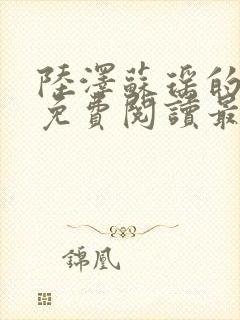 陸澤蘇瑤的
免費閱讀最
錦凰